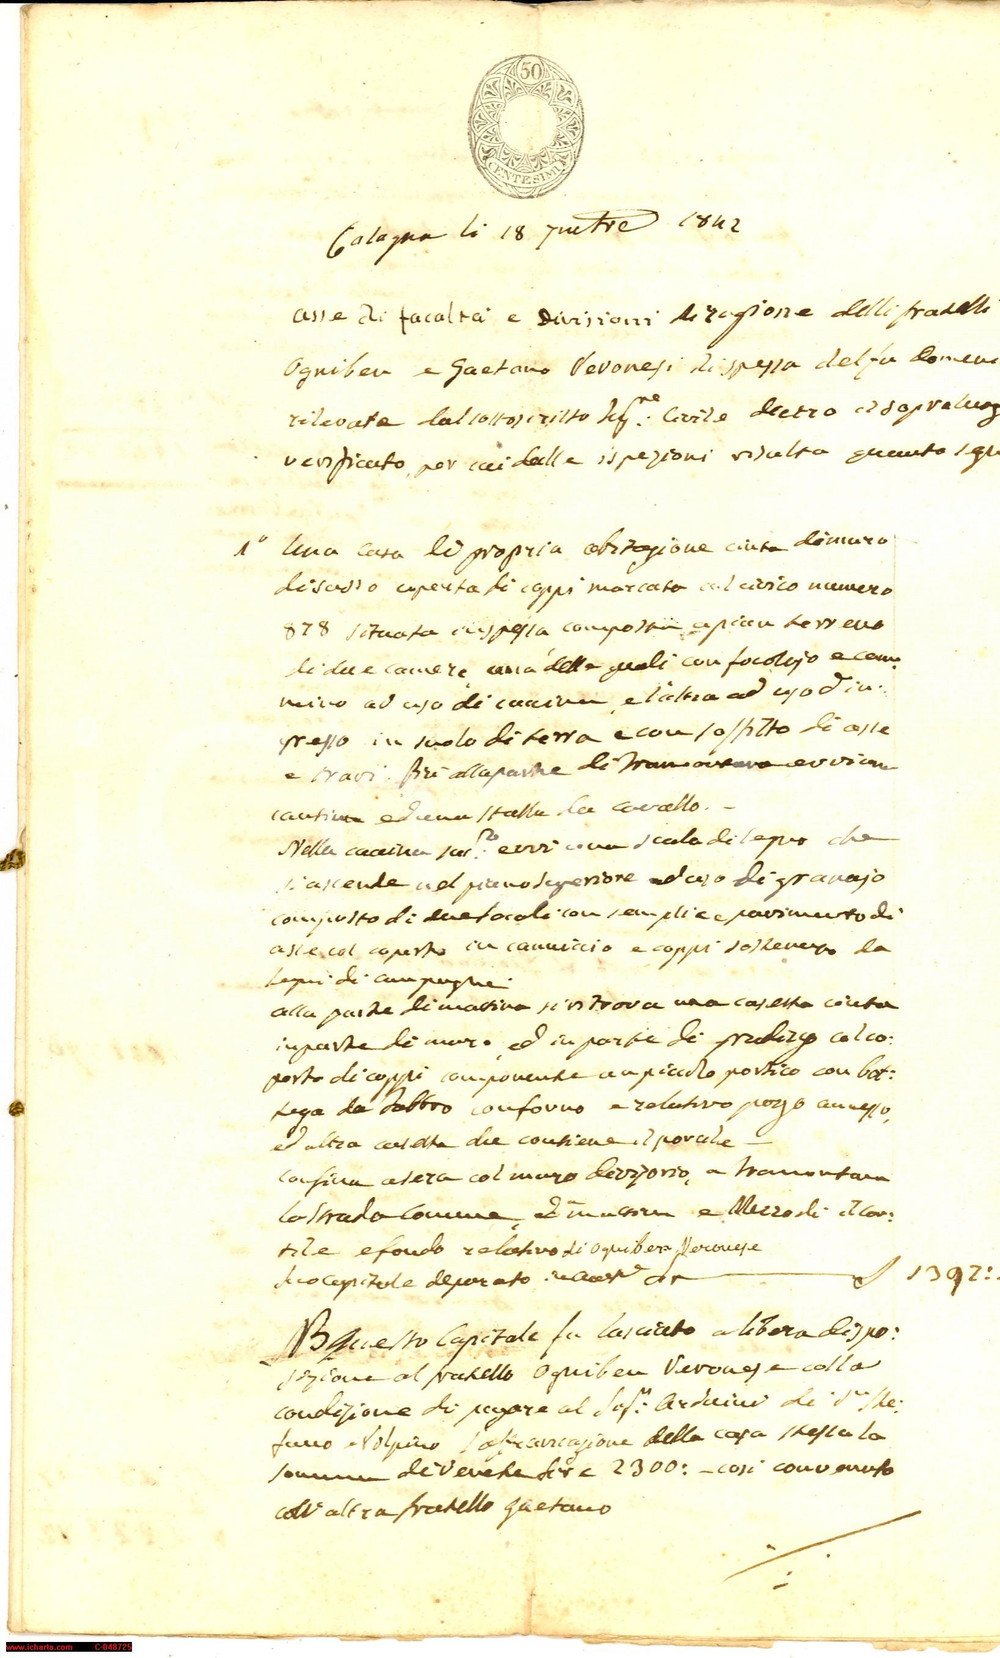 50
CENTESIMI
Cologna li 18 1842
asse di facoltà e Divisioni di ragione delli fratelli
Ogniben e Gaetano Veronesi di spessa del fu Domeni
rilevate dal sottoscritto Ing.ne Civile dietro il sopraluog
verificato, per cui dalle ispezioni risulta quanto segu
1° Una casa di propria abitazione cinta di muro
di sasso coperta di coppi marcata col civico numero
878 situata in spessa composta a pian terreno
di due camere, una delle quali con focolajo e cam
mino ad uso di cucina, e l'altra ad uso d'in:
gresso in suolo di terra e con soffitto di asse
e travi. Più alla parte di tramontana evvi una
cantina ed una stalla da cavallo. –
Nella cucina evvi una scala di legno che
si ascende nel piano superiore ad uso di granajo
composto di due locali con semplice pavimento di
asse col coperto in canniccio e coppi sostenuto da
legni di campagne.
alla parte di mattina si ritrova una casetta cinta
in parte di muro, ed in parte di col co:
perto di coppi componente un piccolo portico con bot:
tega da Fabbro con forno e relativo pozzo annesso,
ed altra casetta che contiene il porcile –
confina a sera col muro divisorio, a tramontana
la Strada Comune, a mattina e Mezzodì il Cor:
tile e fondo relativo di Ogniben Veronese
suo capitale depurato 1392:
NB Questo Capitale fu lasciato a libera dispo:
sizione al fratello Ogniben Veronese colla
condizione di pagare al Sig.r Arduini di S.n Ste:
fano Volpino della casa stessa la
somma di Venete Lire 2300: – così convenuto
coll'altro fratello Gaetano
www.icharta.com C-040725